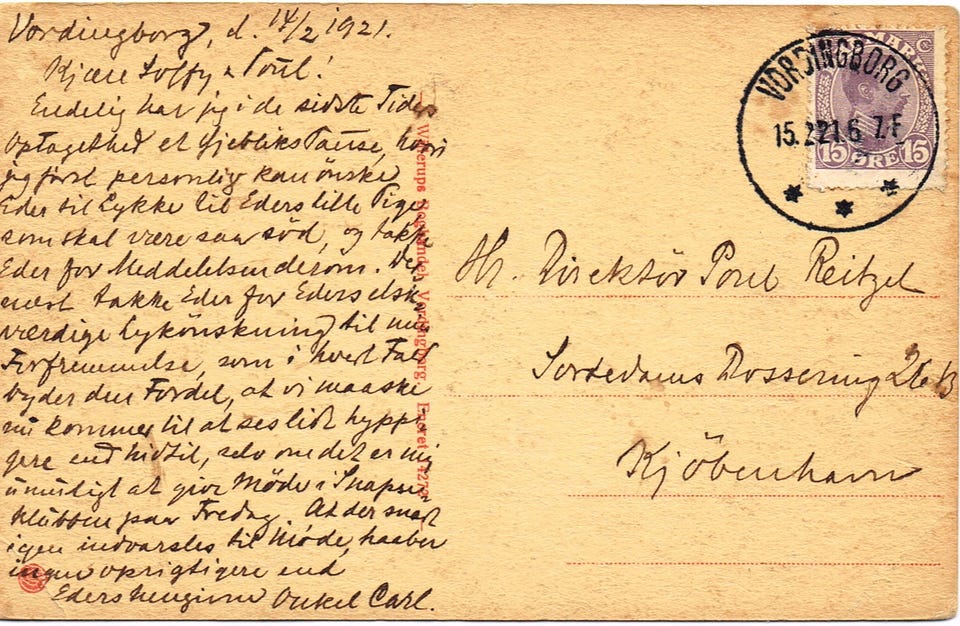 Vordingborg, d. 14/2 1921.
Kjære Soffy & Poul!
Endelig har jeg i de sidste Tiders
Optagethed et Øjebliks Pause, hvori
jeg först personlig kan önske
Eder til Lykke til Eders lille Pige
som skal være saa söd, og takke
Eder for Meddelelsen derom. Der-
næst takke Eder for Eders elsk-
værdige Lykönskning til min
Forfremmelse, som i hvert Fald
byder den Fordel, at vi maaske
nu kommer til at ses lidt hyppi-
gere end hidtil, selv om det er mig
umuligt at give Möde i Snapse-
klubben paa Fredag. At der snart
igen indvarsles til Möde, haaber
ingen oprigtigere end
Eders hengivne Onkel Carl.
Eneret 4270
VORDINGBORG
15.2.21.6 7.F
DANMARK
15 ØRE 15
Hr. Direktör Poul Reitzel
Sortedams Dossering 26 B
Kjöbenhavn